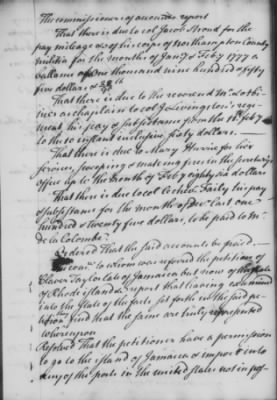 The commissioners of accounts report
That there is due to col Jacob Stroud for the
pay mileage & of his corps of Northampton County
militia for the months of Jany & Feby 1777 a
ballance of one thousand nine hundred & fifty
five dollars &
That there is due to the reverend Mr
chaplain to col J Livingston's regi-
ment, his pay & subsistance from the 18 feby
to the instant inclusive, sixty dollars.
That there is due to Mary for her
services, sweeping & making fires in the
office up to the month of Feby eighty six dollars
That there is due to col his pay
& subsistance for the month of Decr last one
hundred & twenty five dollars, to be paid to Mr
de la Colombe
Ordered That the said accounts be paid
The comee to whom was referred the petition of
Taylor late of Jamaica but now of the state
of Rhode island & report that having examined
into the state of the facts set forth in the said pe-
tition they find that the same are truly represented
whereupon
Resolved That the petitioner have a permission
to go to the island of Jamaica & import into
any of the ports in the united states not in pos-